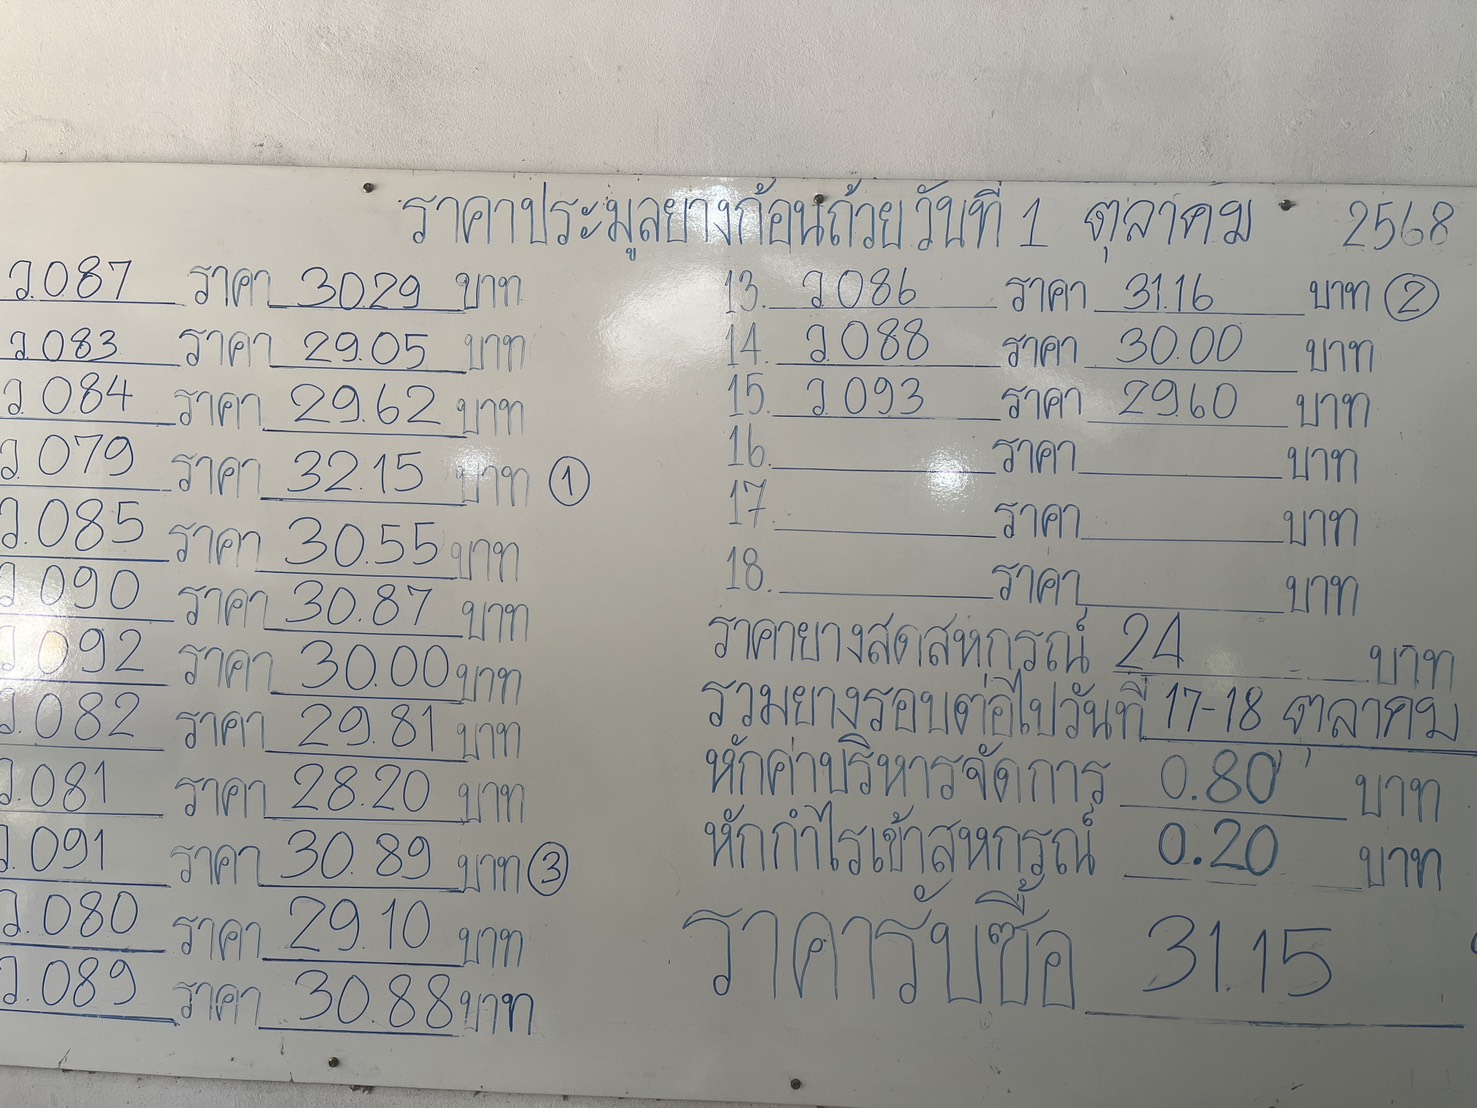 ราคาประมูลยางก้อนถ้วย วันที่ 1 ตุลาคม 2568
ว.087 ราคา 30.29 บาท
ว.083 ราคา 29.05 บาท
ว.084 ราคา 29.62 บาท
ว.079 ราคา 32.15 บาท ①
ว.085 ราคา 30.55 บาท
ว.090 ราคา 30.87 บาท
ว.092 ราคา 30.00 บาท
ว.082 ราคา 29.81 บาท
ว.081 ราคา 28.20 บาท
ว.091 ราคา 30.89 บาท ③
ว.080 ราคา 29.10 บาท
ว.089 ราคา 30.88 บาท
13. ว.086 ราคา 31.16 บาท ②
14. ว.088 ราคา 30.00 บาท
15. ว.093 ราคา 29.60 บาท
16. ราคา บาท
17. ราคา บาท
18. ราคา บาท
ราคายางสดสหกรณ์ 24 บาท
รวมยางรอบต่อไปวันที่ 17-18 ตุลาคม
หักค่าบริหารจัดการ 0.80 บาท
หักกำไรเข้าสหกรณ์ 0.20 บาท
ราคารับซื้อ 31.15